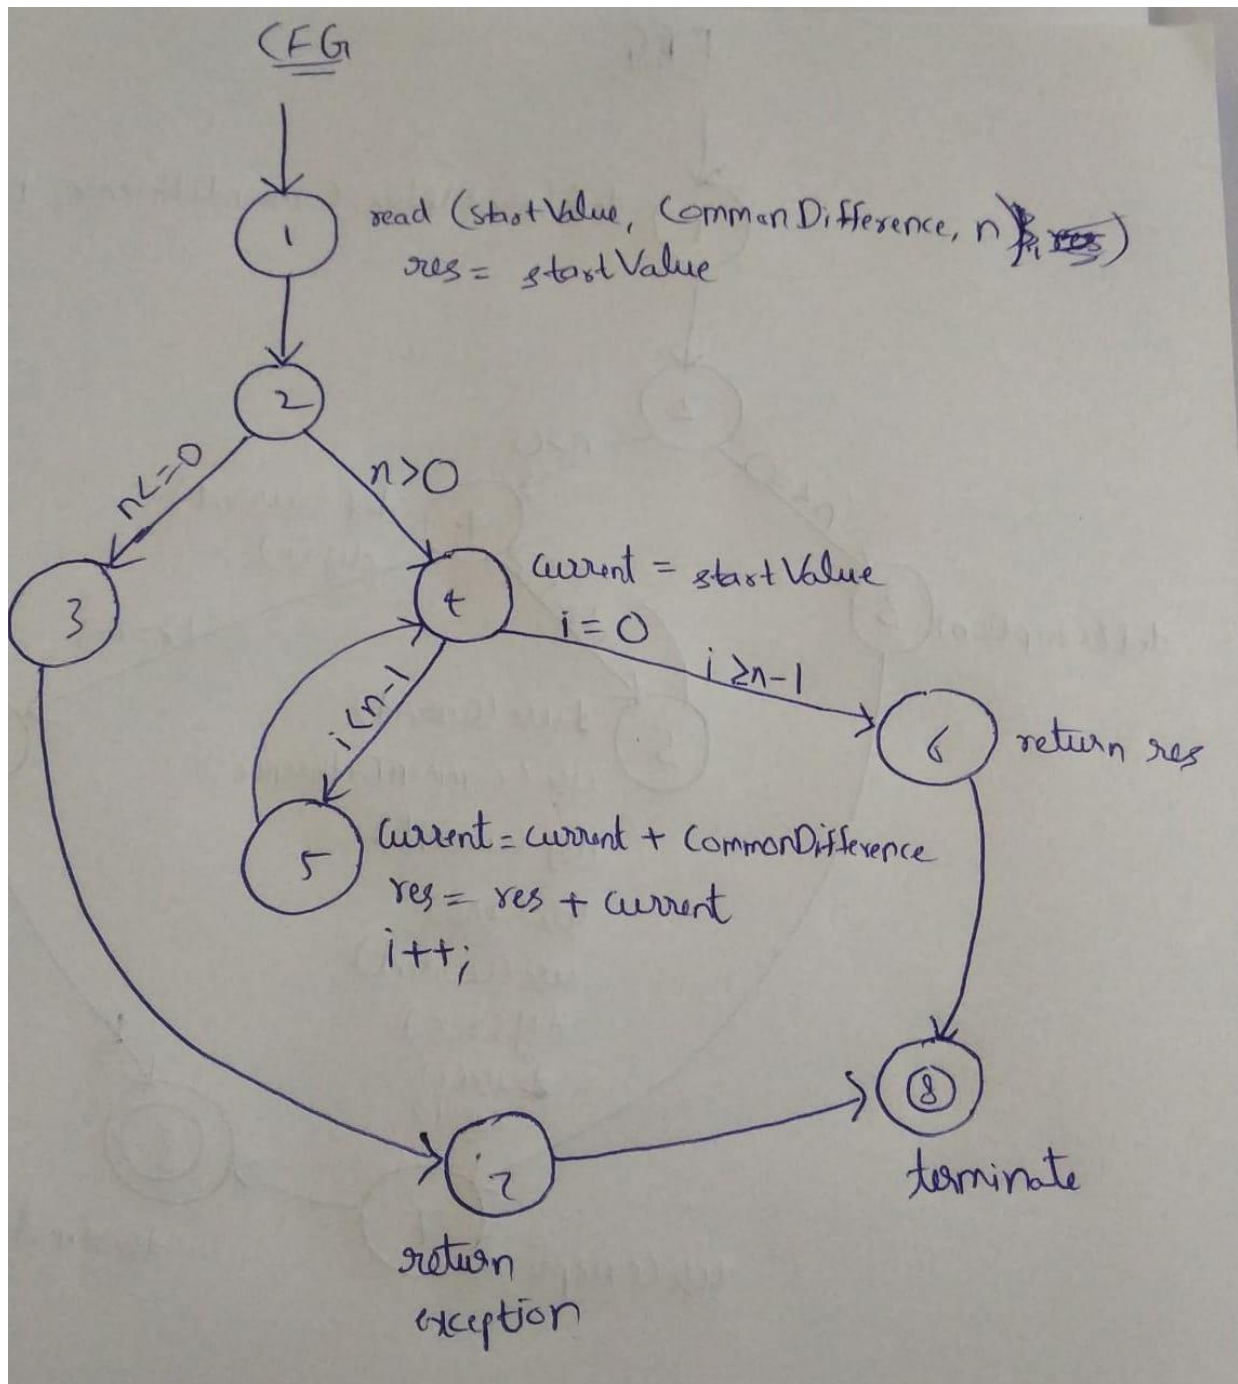 CFG
1
read (startValue, CommonDifference, n)
res = startValue
2
n<=0
n>0
3
4
current = startValue
i = 0
i<n-1
i≥n-1
6
return res
5
current = current + CommonDifference
res = res + current
i++;
8
terminate
7
return
exception